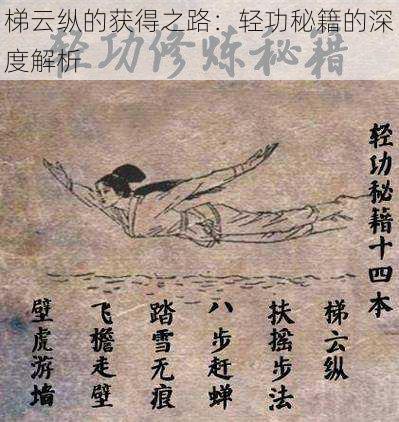 梯云纵的获得之路：轻功秘籍的深
度解析
轻功修炼秘籍
轻功秘籍十四本
梯云纵
扶摇步法
八步赶蝉
踏雪无痕
飞檐走壁
壁虎游墙